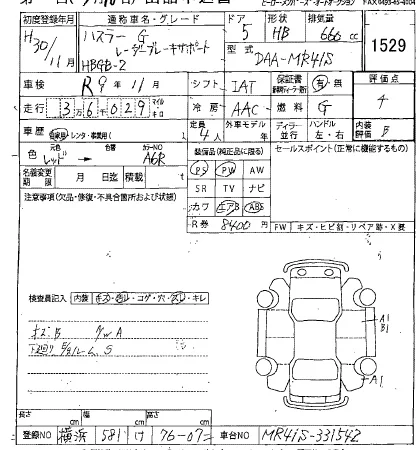 初度登録年月
H30/11月
通称車名・グレード
ハスラー G
レーダーブレーキサポート
HBGB-2
ドア
5
形状
HB
排気量
660 cc
型式
DAA-MR41S
1529
車検
R9年11月
シフト
IAT
保証書
有・無
評価点
4
走行
3万6千029
マイル
キロ
冷房
AAC
燃料
G
内装評価
B
車歴
自家用・レンタ・事業用(
定員
4人
外車モデル
年
ディーラー・並行
ハンドル
左・右
色
元色
レッド
色替
カラーNO
A6R
装備品(純正品に限る)
セールスポイント(正常に機能するもの)
PS PW AW
SR TV ナビ
カワ エアB ABS
名義変更期限
月 日迄
積載
R券
8400円
注意事項(欠品・修復・不具合箇所および状態)
FW
キズ・ヒビ割・リペア跡・X要
検査員記入
内装
キズ・汚レ・コゲ・穴・スレ・キレ
A1
B1
A1
長さ
cm
幅
cm
高さ
cm
登録NO
横浜 581 け 76-07
車台NO
MR41S-331542